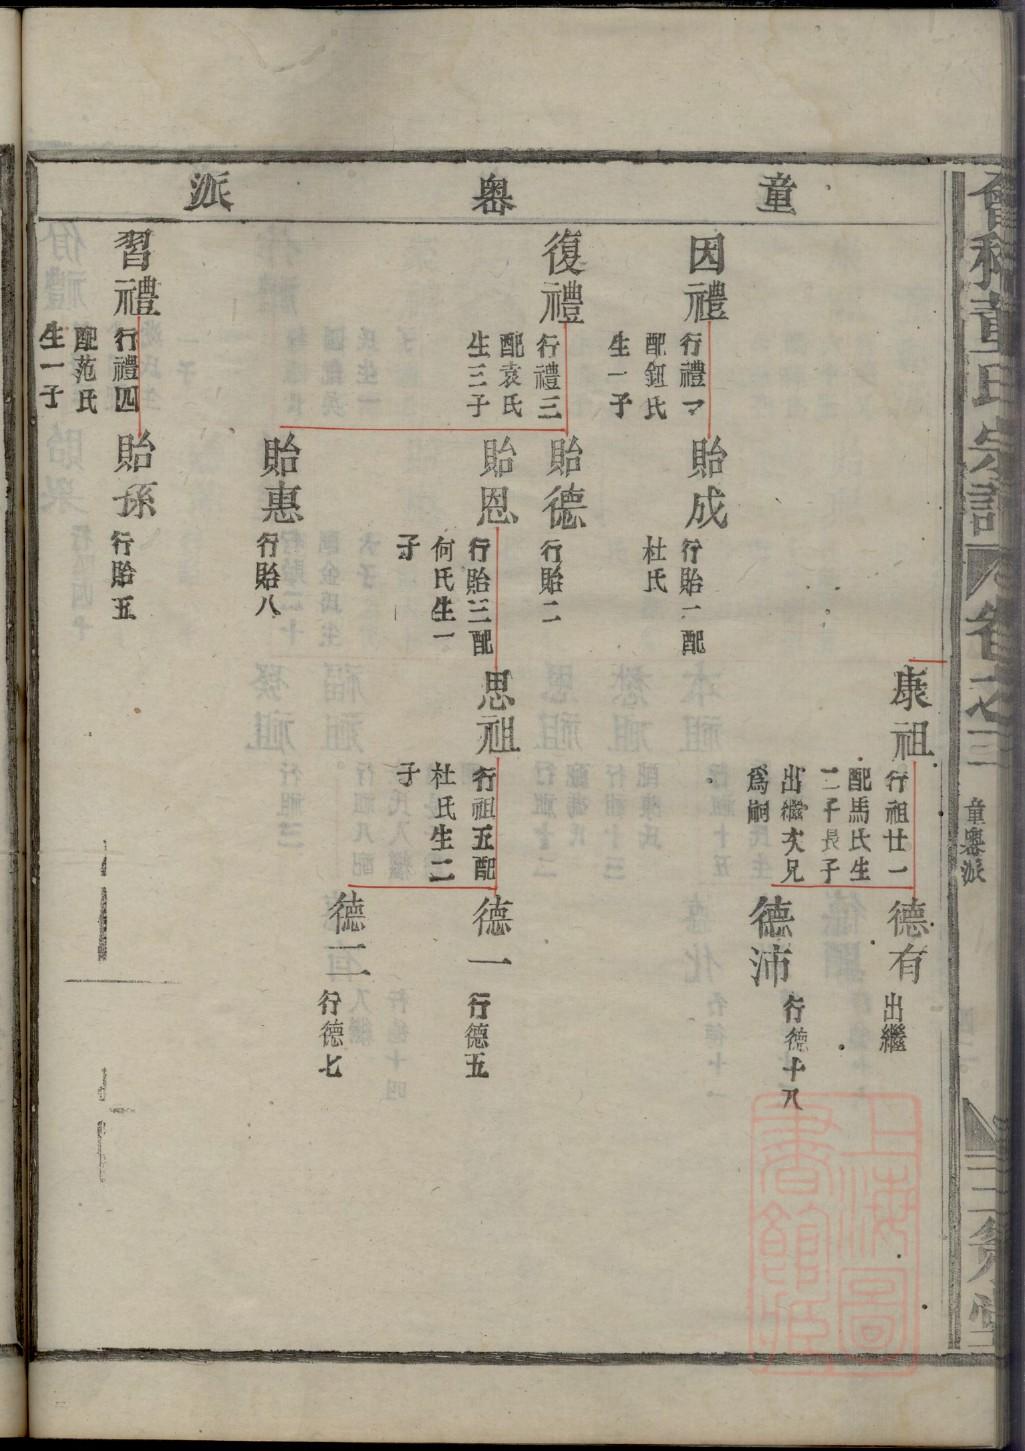 會稽童氏宗譜
卷之三
童㟁派
童㟁派
康祖
行祖廿一
配馬氏生
二子長子
出繼次兄
爲嗣
德有
出繼
德沛
行德十八
因禮
行禮二
配鈕氏
生一子
貽成
行貽一配
杜氏
復禮
行禮三
配袁氏
生三子
貽德
行貽二
貽恩
行貽三配
何氏生一
子
思祖
行祖五配
杜氏生二
子
德一
行德五
德二
行德七
貽惠
行貽八
習禮
行禮四
配范氏
生一子
貽孫
行貽五
上海圖
書館藏